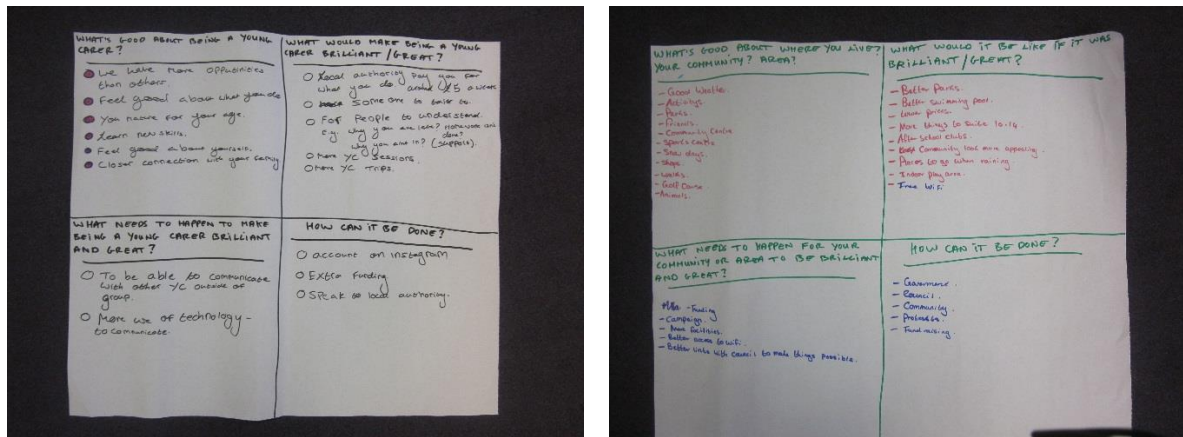 WHAT'S GOOD ABOUT BEING A YOUNG
CARER?
We have more oppounities
than others.
Feel good about what you do
You mature for your age.
Learn new skills.
Feel good about yourself.
Closer connection with your family
WHAT WOULD MAKE BEING A YOUNG
CARER BRILLIANT/GREAT?
Local authority pay you for
what you do around £5 a week
someone to talk to.
For People to understand.
e.g. why you are late? Homework not
done?
why you are in? (support).
More YC Sessions.
More YC Trips.
WHAT NEEDS TO HAPPEN TO MAKE
BEING A YOUNG CARER BRILLIANT
AND GREAT?
To be able to communicate
with other YC outside of
group.
More use of technology -
to comunicate.
HOW CAN IT BE DONE?
account on instagram
Extra funding
Speak to local authority.
WHAT'S GOOD ABOUT WHERE YOU LIVE?
YOUR COMMUNITY? AREA?
- Good Weather
- Activitys.
- Parks.
- Friends.
- Community Centre
- Sports centre
- Snow days.
- shops.
- walks.
- Golf Course
- Animals.
WHAT WOULD IT BE LIKE IF IT WAS
BRILLIANT/GREAT?
- Better Parks.
- Better swimming pool.
- Lower prices.
- More things to suite 10-14.
- After school clubs.
- Community look more appealing.
- Places to go when raining
- Indoor play area.
- Free Wifi
WHAT NEEDS TO HAPPEN FOR YOUR
COMMUNITY OR AREA TO BE BRILLIANT
AND GREAT?
- Funding
- Campaign.
- More facilities.
- Better access to wifi.
- Better links with council to make things possible.
HOW CAN IT BE DONE?
- Council.
- Community.
- Fundraising.